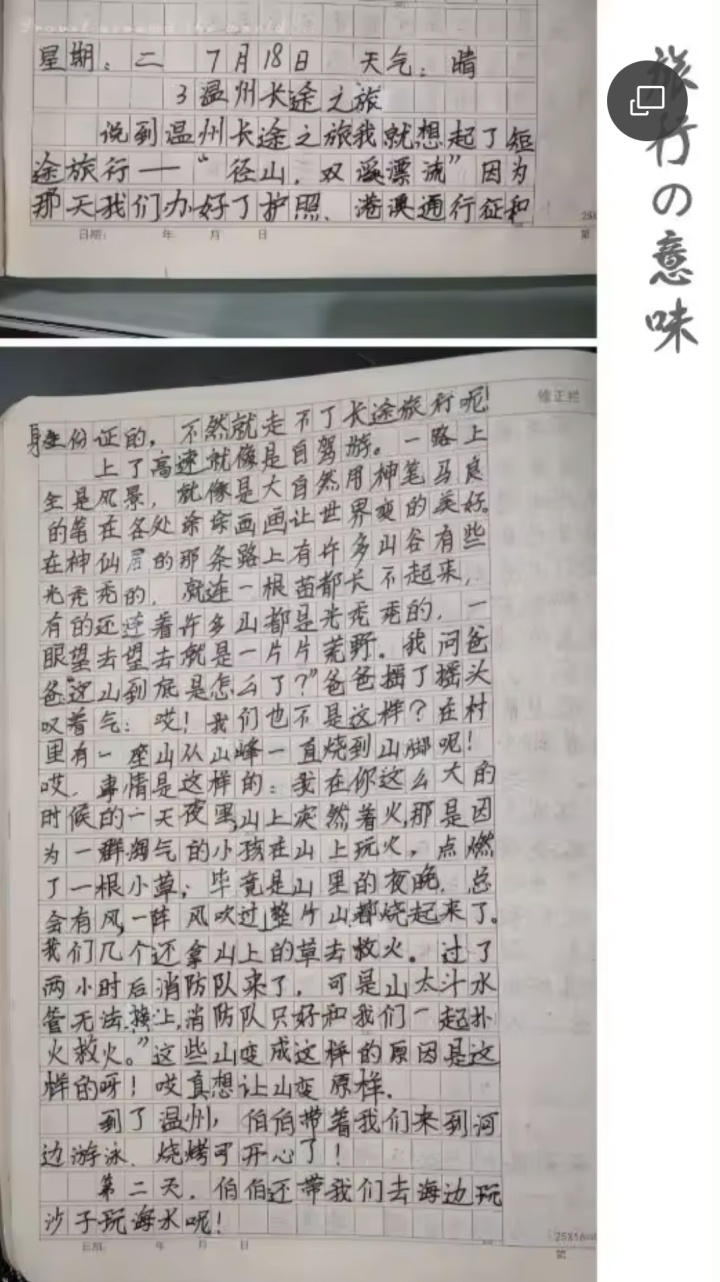 Travel around the world...
星期：二 7月18日 天气：晴
3温州长途之旅
说到温州长途之旅我就想起了短
途旅行——“径山，双溪漂流”因为
那天我们办好了护照、港澳通行征和
日期： 年 月 日
第
身份证的，不然就走不了长途旅行呢!
修正栏
上了高速就像是自驾游。一路上
全是风景，就像是大自然用神笔马良
的笔在各处涂涂画画让世界变的美好。
在神仙居的那条路上有许多山谷有些
光秃秃的，就连一根苗都长不起来，
有的还连着许多山都是光秃秃的，一
眼望去望去就是一片片荒野。我问爸
爸“这山到底是怎么了？”爸爸摇了摇头
叹着气：哎！我们也不是这样？在村
里有一座山从山峰一直烧到山脚呢！
哎，事情是这样的：我在你这么大的
时候的一天夜里,山上突然着火,那是因
为一群淘气的小孩在山上玩火，点燃
了一根小草；毕竟是山里的夜晚，总
会有风,一阵风吹过,整片山都烧起来了。
我们几个还拿山上的草去救火。过了
两小时后消防队来了，可是山太斗水
管无法接上,消防队只好和我们一起扑
火救火。”这些山变成这样的原因是这
样的呀！哎真想让山变原样.
到了温州，伯伯带着我们来到河
边游泳、烧烤可开心了！
第二天，伯伯还带我们去海边玩
沙子玩海水呢！
日期： 年 月 日
第
旅行の意味